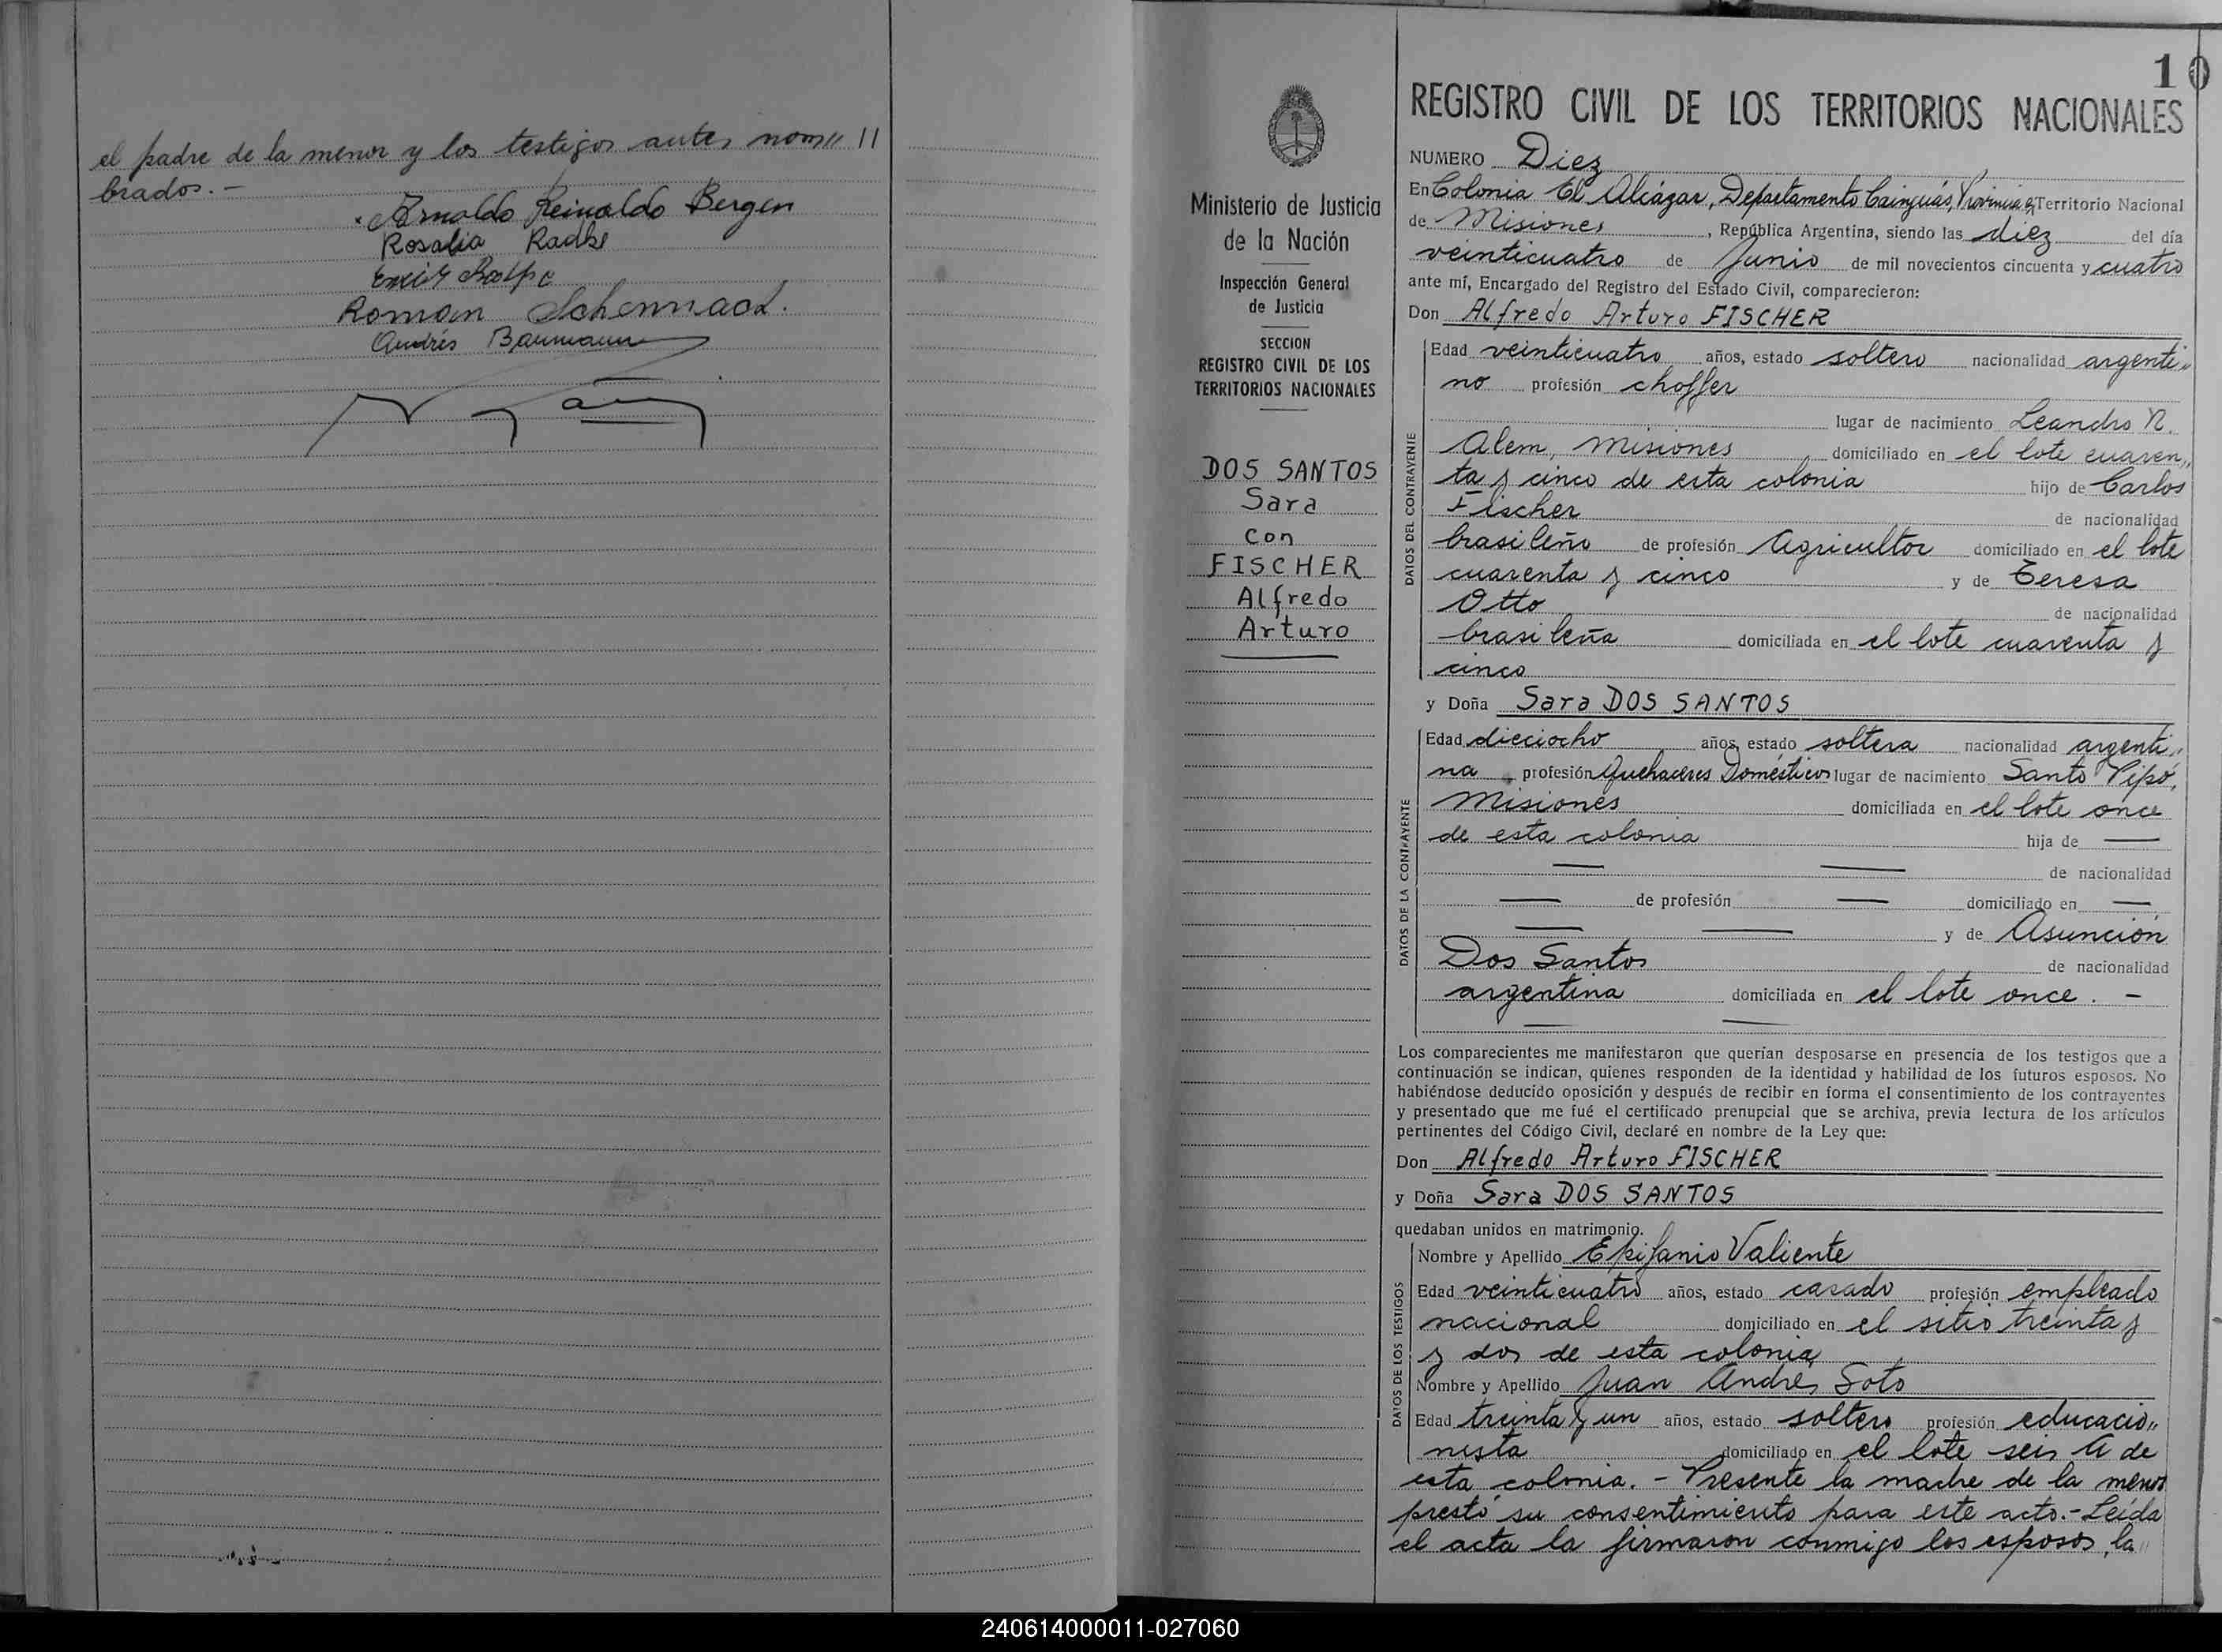 el padre de la menor y los testigos antes nom〃 11
brados.-
Arnaldo Reinaldo Bergen
Rosalia Radke
Roman
Andrés Baumann
10
REGISTRO CIVIL DE LOS TERRITORIOS NACIONALES
NUMERO Diez
En Colonia El Alcázar, Departamento Cainguás, Provincia, Territorio Nacional
de Misiones, República Argentina, siendo las diez del día
veinticuatro de Junio de mil novecientos cincuenta y cuatro
ante mí, Encargado del Registro del Estado Civil, comparecieron:
Don Alfredo Arturo FISCHER
Edad veinticuatro años, estado soltero nacionalidad argenti〃
no profesión choffer
lugar de nacimiento Leandro N.
Alem, Misiones domiciliado en el lote cuaren〃
ta y cinco de esta colonia hijo de Carlos
Fischer de nacionalidad
brasileño de profesión Agricultor domiciliado en el lote
cuarenta y cinco y de Teresa
Otto de nacionalidad
brasileña domiciliada en el lote cuarenta y
cinco
DATOS DEL CONTRAYENTE
y Doña Sara DOS SANTOS
Edad dieciocho años, estado soltera nacionalidad argenti〃
na profesión Quehaceres Domésticos lugar de nacimiento Santo Pipó,
Misiones domiciliada en el lote once
de esta colonia hija de —
— — de nacionalidad
— de profesión — domiciliado en —
— — y de Asunción
Dos Santos de nacionalidad
argentina domiciliada en el lote once. -
DATOS DE LA CONTRAYENTE
Los comparecientes me manifestaron que querían desposarse en presencia de los testigos que a
continuación se indican, quienes responden de la identidad y habilidad de los futuros esposos. No
habiéndose deducido oposición y después de recibir en forma el consentimiento de los contrayentes
y presentado que me fué el certificado prenupcial que se archiva, previa lectura de los artículos
pertinentes del Código Civil, declaré en nombre de la Ley que:
Don Alfredo Arturo FISCHER
y Doña Sara DOS SANTOS
quedaban unidos en matrimonio.
Nombre y Apellido Epifanio Valiente
Edad veinticuatro años, estado casado profesión empleado
nacional domiciliado en el sitio treinta y
y dos de esta colonia
Nombre y Apellido Juan Andrés Soto
Edad treinta y un años, estado soltero profesión educacio〃
nista domiciliado en el lote seis A de
DATOS DE LOS TESTIGOS
esta colonia. - Presente la madre de la menor
prestó su consentimiento para este acto.- Leída
el acta la firmaron conmigo los esposos, la 〃
Ministerio de Justicia
de la Nación
Inspección General
de Justicia
SECCION
REGISTRO CIVIL DE LOS
TERRITORIOS NACIONALES
DOS SANTOS
Sara
con
FISCHER
Alfredo
Arturo
240614000011-027060